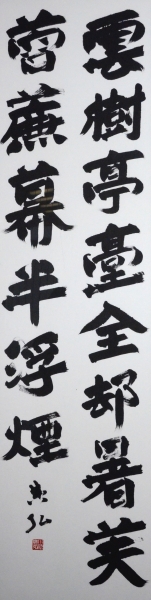 雲樹亭臺全却暑芙
蓉簾幕半浮煙